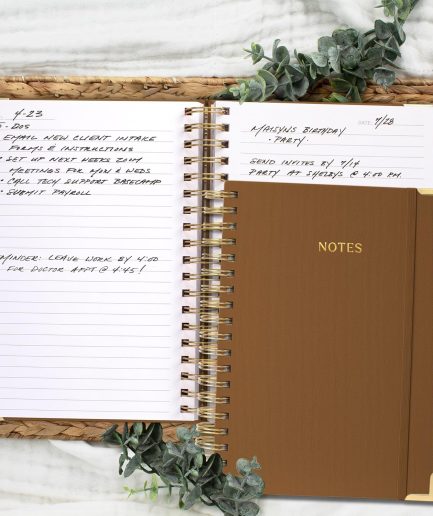 4-23
- Dos
EMAIL NEW CLIENT INTAKE
FORMS & INSTRUCTIONS
• SET UP NEXT WEEKS ZOOM
MEETINGS FOR MON & WEDS
• CALL TECH SUPPORT BASECAMP
• SUBMIT PAYROLL
MINDER: LEAVE WORK BY 4:00
FOR DOCTOR APPT @ 4:45!
DATE: 7/28
MAISYNS BIRTHDAY
• PARTY •
SEND INVITES BY 7/14
PARTY AT SHELBYS @ 4:00 PM.
NOTES